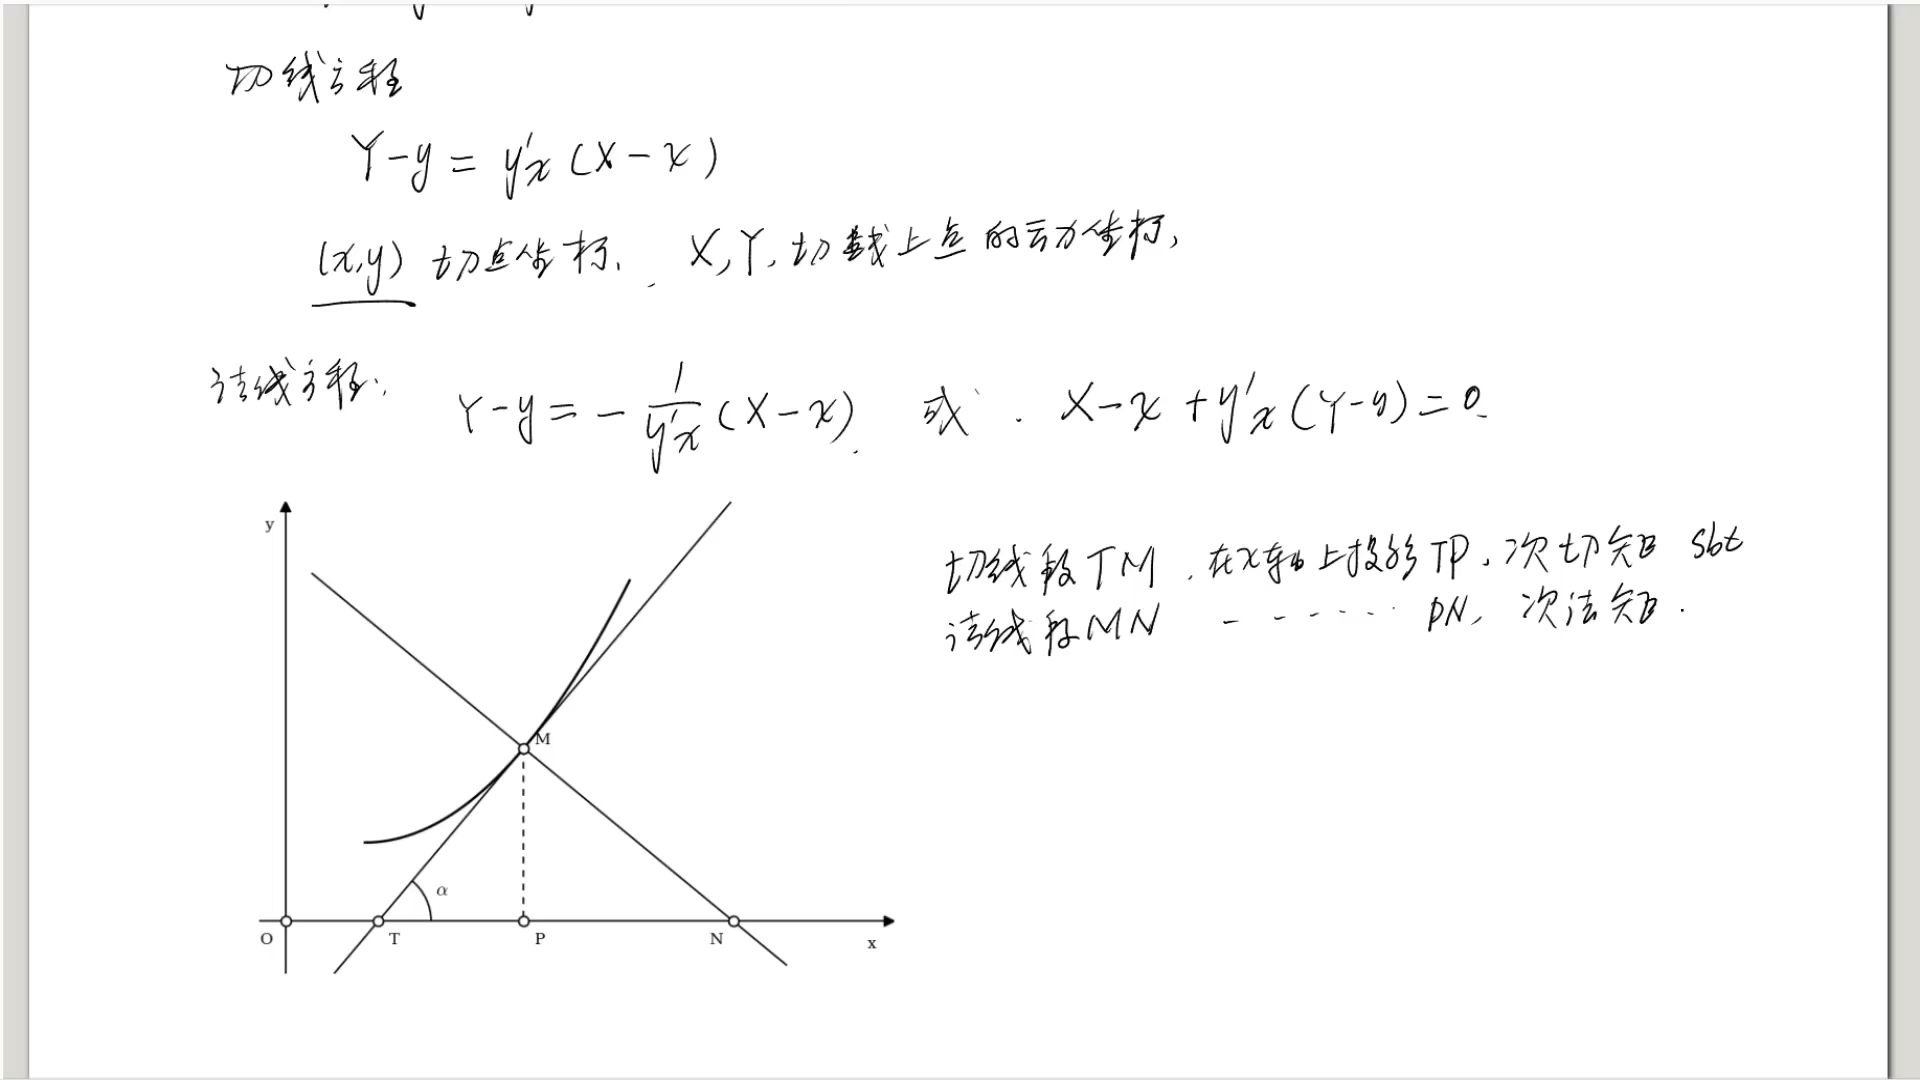 切线方程
Y-y = y'x (X-x)
(x,y) 切点坐标. X,Y, 切线上点的动坐标,
法线方程:
Y-y = - 1/y'x (X-x) 或 X-x + y'x (Y-y) = 0
切线段TM, 在x轴上投影TP, 次切矩 sbt
法线段MN - - - - - - PN, 次法矩.
y
M
α
O T P N x